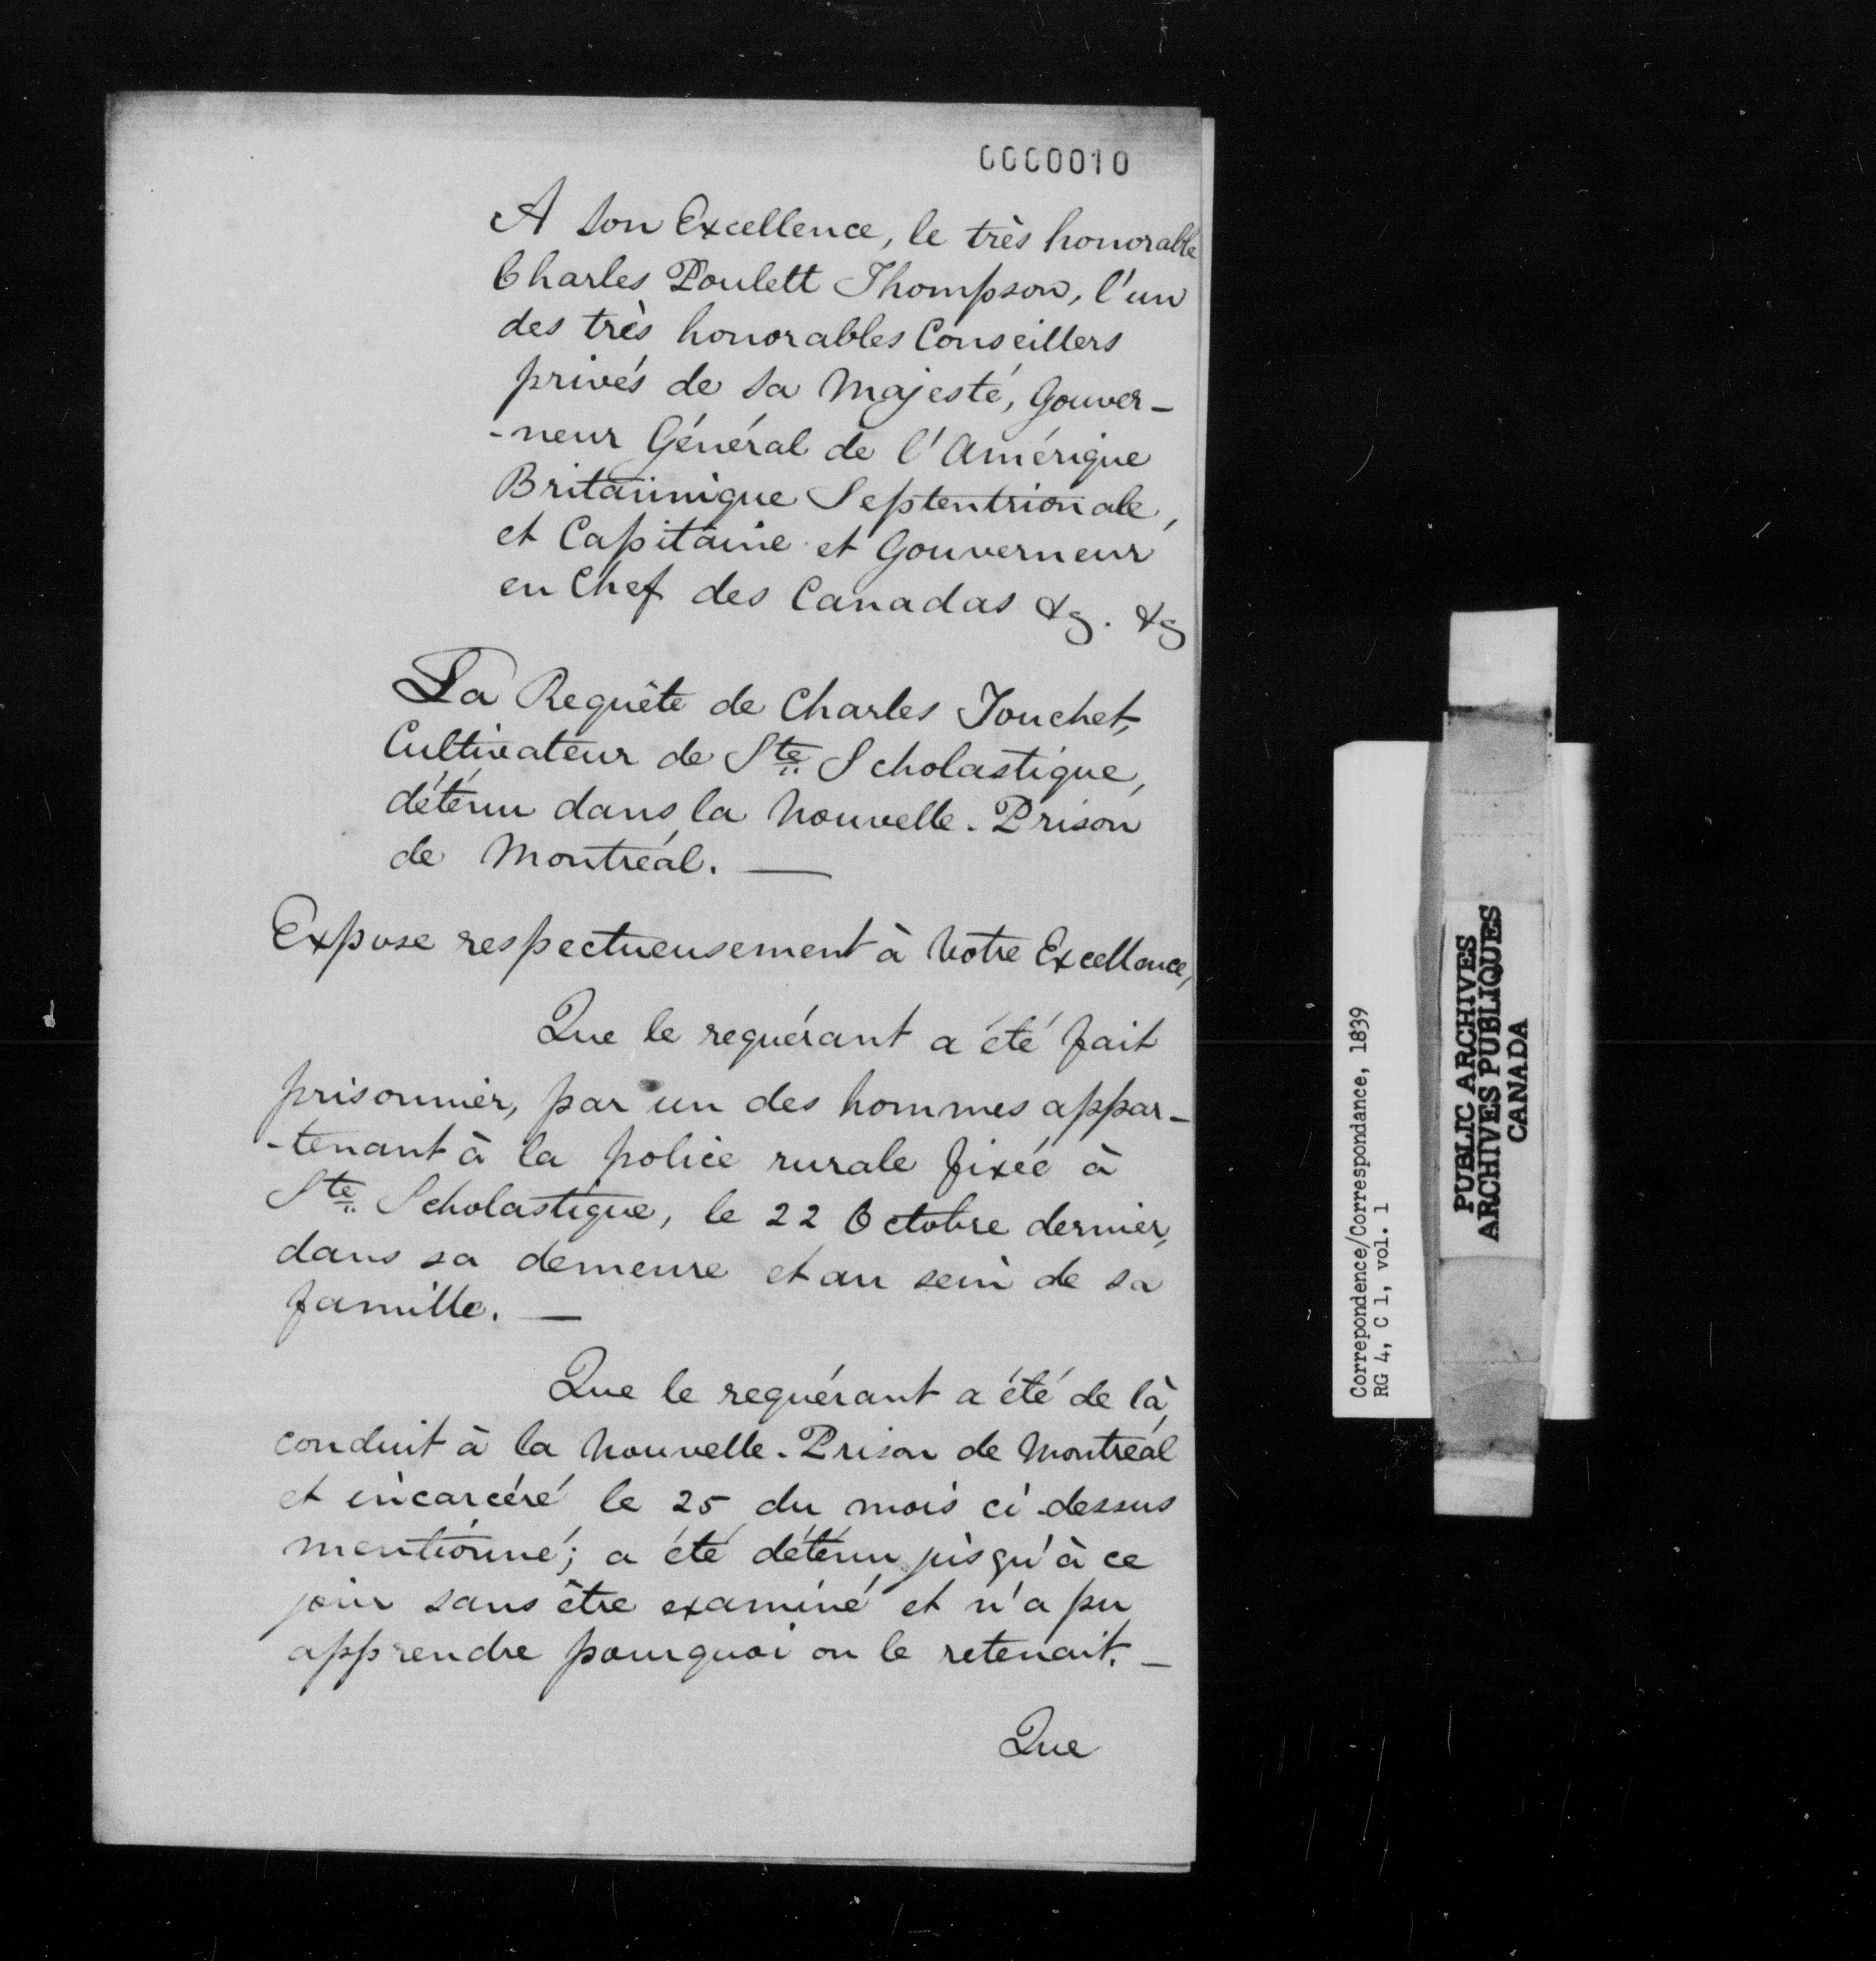 0000010
A Son Excellence, le très honorable
Charles Poulett Thompson, l'un
des très honorables Conseillers
privés de Sa Majesté, Gouver-
-neur Général de l'Amérique
Britannique Septentrionale,
et Capitaine et Gouverneur
en Chef des Canadas &c. &c
La Requête de Charles Touchet,
Cultivateur de Ste. Scholastique,
détenu dans la Nouvelle-Prison
de Montréal. —
Expose respectueusement à Votre Excellence,
Que le requérant a été fait
prisonnier, par un des hommes appar-
-tenant à la police rurale fixée à
Ste. Scholastique, le 22 Octobre dernier,
dans sa demeure et au sein de sa
famille. —
Que le requérant a été de là,
conduit à la Nouvelle-Prison de Montréal
et incarcéré le 25 du mois ci-dessus
mentionné; a été détenu jusqu'à ce
jour sans être examiné et n'a pu
apprendre pourquoi on le retenait. —
Que
Correpondence/Correspondance, 1839
RG 4, C 1, vol. 1
PUBLIC ARCHIVES
ARCHIVES PUBLIQUES
CANADA